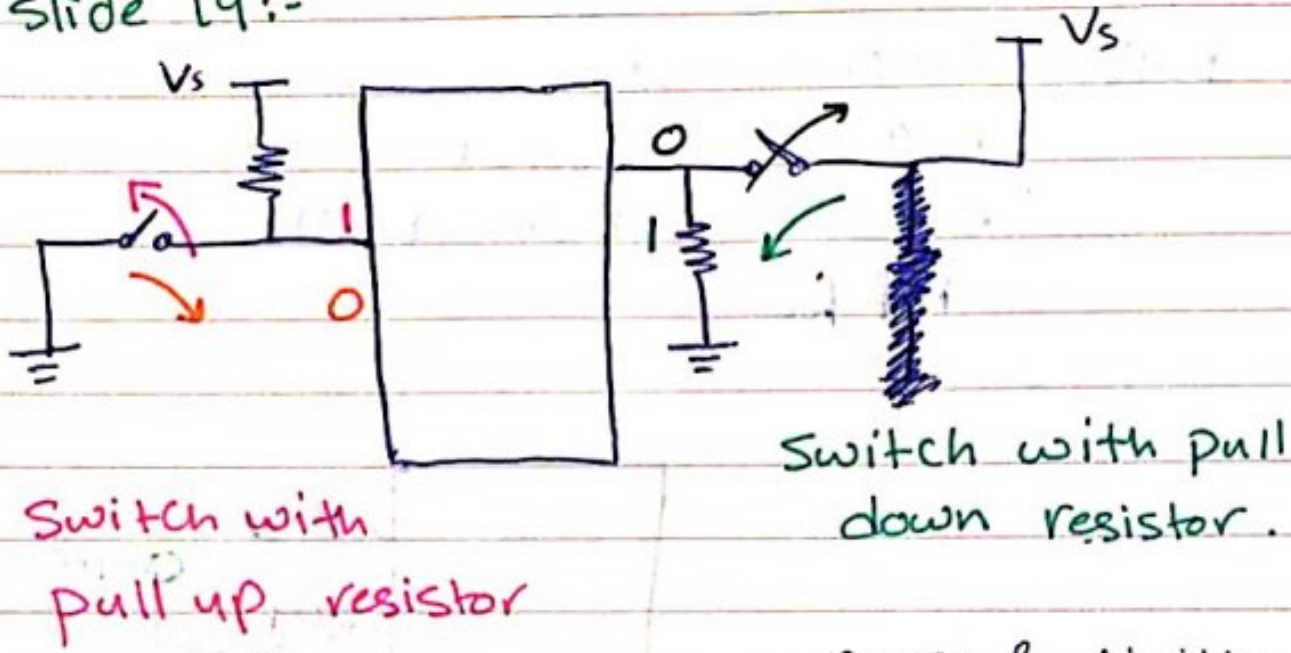 Slide 19:-
Vs
Vs
0
1
1
0
Switch with pull
down resistor.
Switch with
pull up resistor